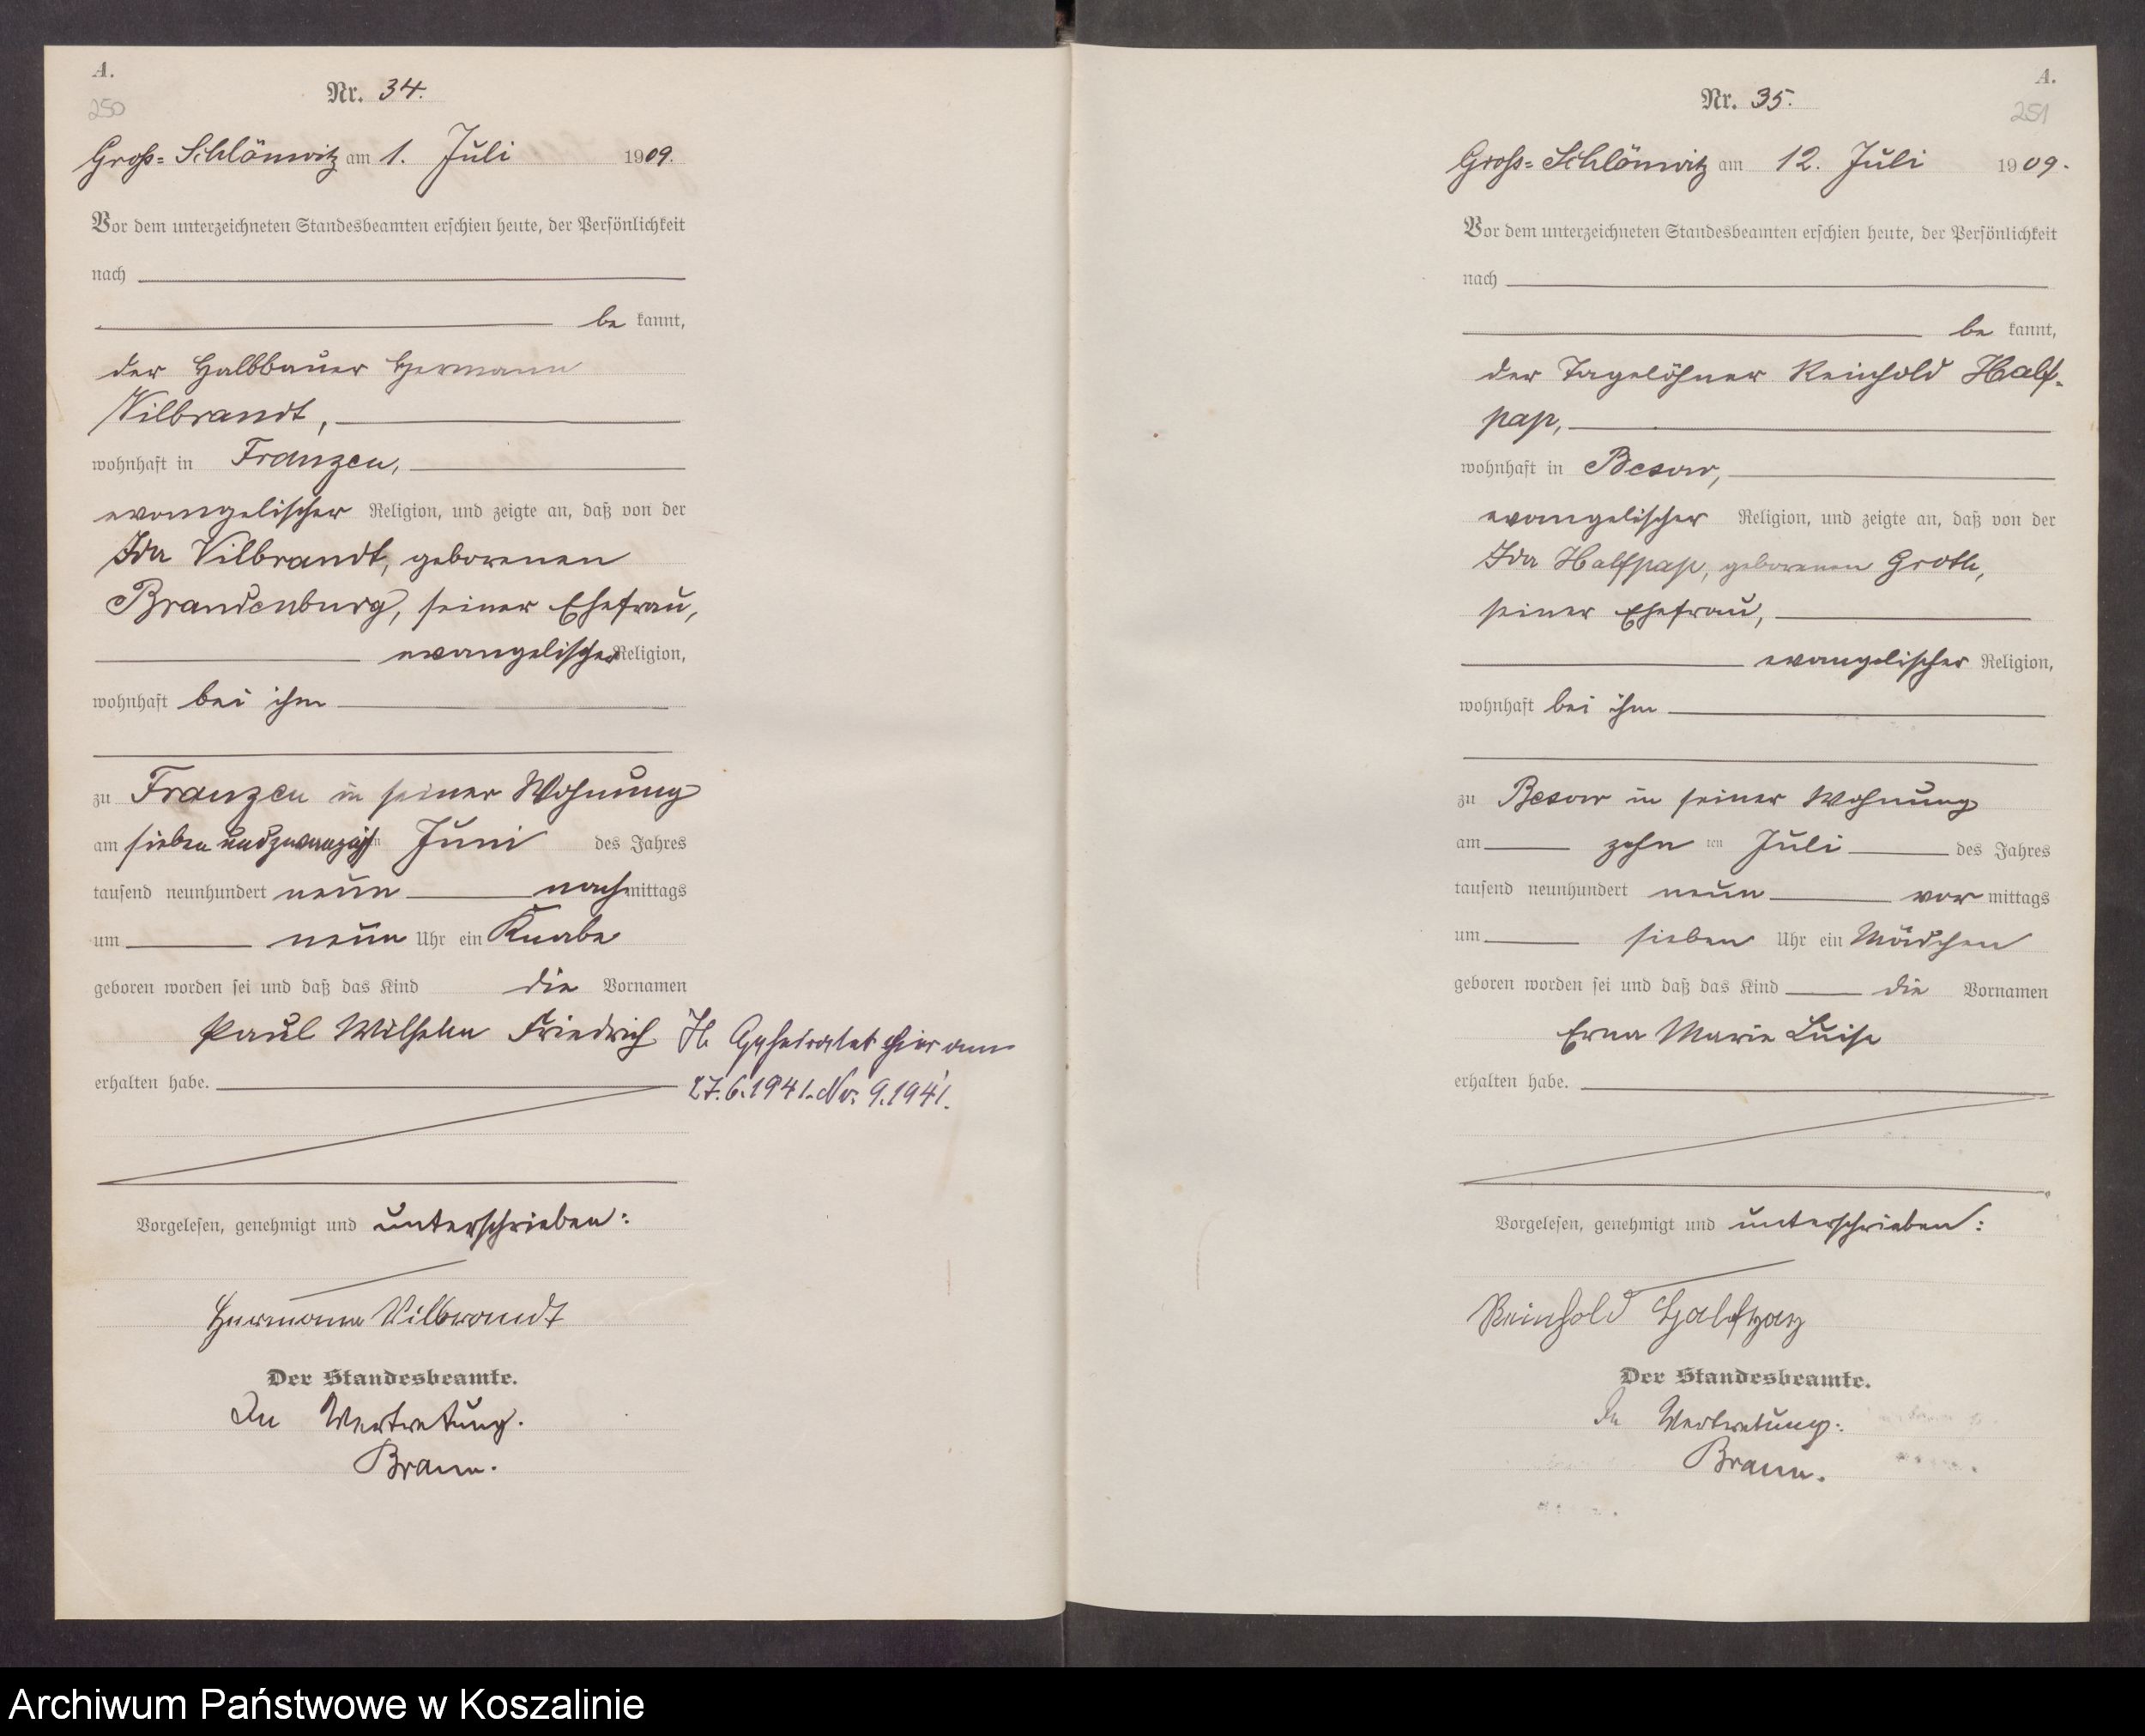 A.
250
Nr. 34.
Groß-Schlönwitz am 1. Juli 1909.
Vor dem unterzeichneten Standesbeamten erschien heute, der Persönlichkeit
nach
be kannt,
der Halbbauer Hermann
Vilbrandt,
wohnhaft in Franzen,
evangelischer Religion, und zeigte an, daß von der
Ida Vilbrandt, geborenen
Brandenburg, seiner Ehefrau,
evangelischer Religion,
wohnhaft bei ihm
zu Franzen in seiner Wohnung
am siebenundzwanzigsten Juni des Jahres
tausend neunhundert neun nachmittags
um neun Uhr ein Knabe
geboren worden sei und daß das Kind die Vornamen
Paul Wilhelm Friedrich
erhalten habe.
Geheiratet hier am
27.6.1941. Nr. 9.1941.
Vorgelesen, genehmigt und unterschrieben:
Hermann Vilbrandt
Der Standesbeamte.
In Vertretung.
Braun.
A.
251
Nr. 35.
Groß-Schlönwitz am 12. Juli 1909.
Vor dem unterzeichneten Standesbeamten erschien heute, der Persönlichkeit
nach
be kannt,
der Tagelöhner Reinhold Half-
pap,
wohnhaft in Besow,
evangelischer Religion, und zeigte an, daß von der
Ida Halfpap, geborenen Groth,
seiner Ehefrau,
evangelischer Religion,
wohnhaft bei ihm
zu Besow in seiner Wohnung
am zehn ten Juli des Jahres
tausend neunhundert neun vor mittags
um sieben Uhr ein Mädchen
geboren worden sei und daß das Kind die Vornamen
Erna Marie Luise
erhalten habe.
Vorgelesen, genehmigt und unterschrieben:
Reinhold Halfpap
Der Standesbeamte.
In Vertretung:
Braun.
Archiwum Państwowe w Koszalinie